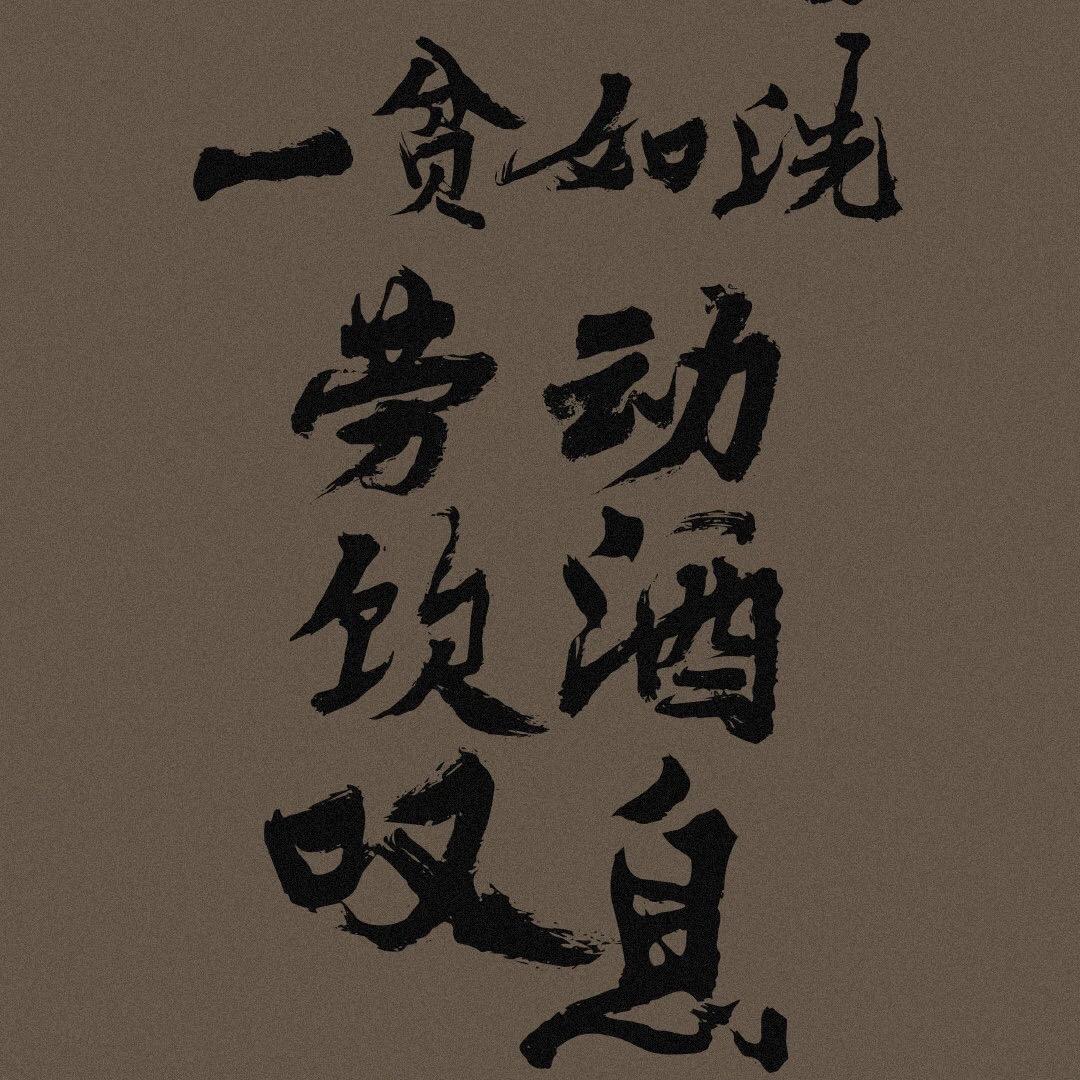 一贫如洗
劳动
饮酒
叹息